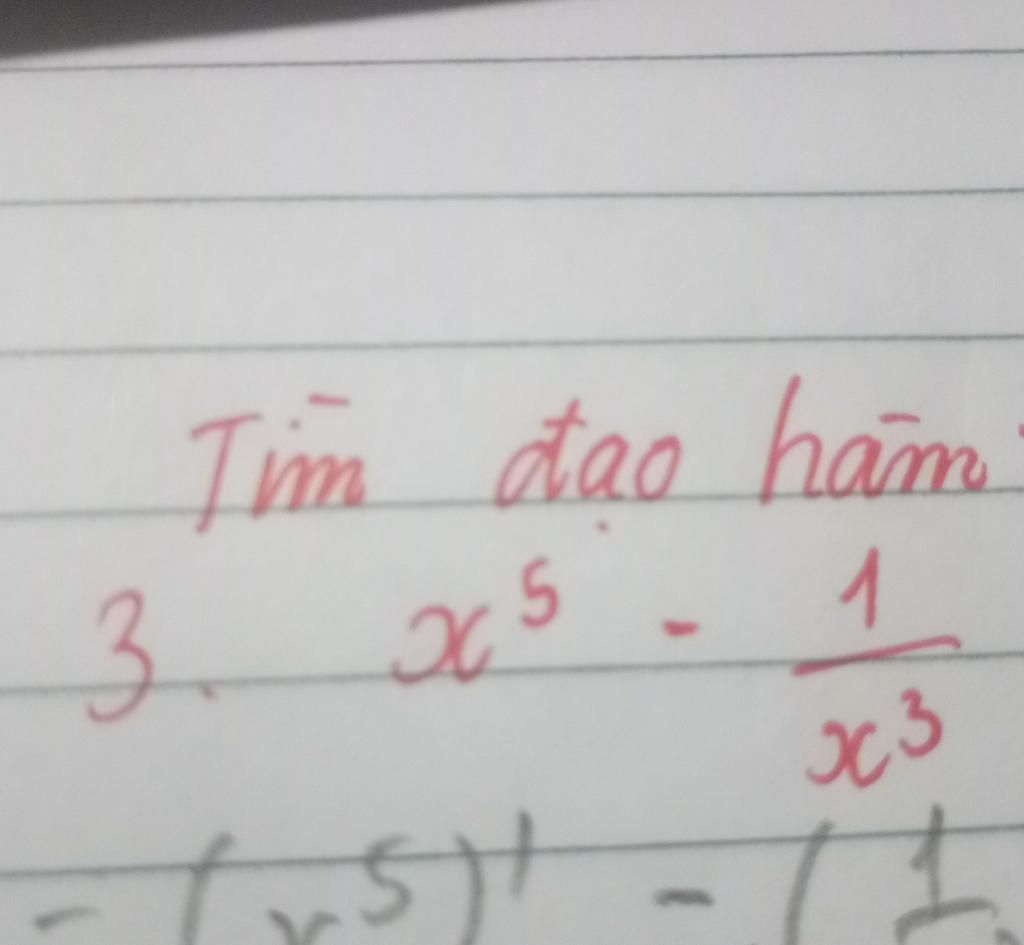 Tìm đạo hàm
3. x⁵ - 1/x³
- (x⁵)' - (1